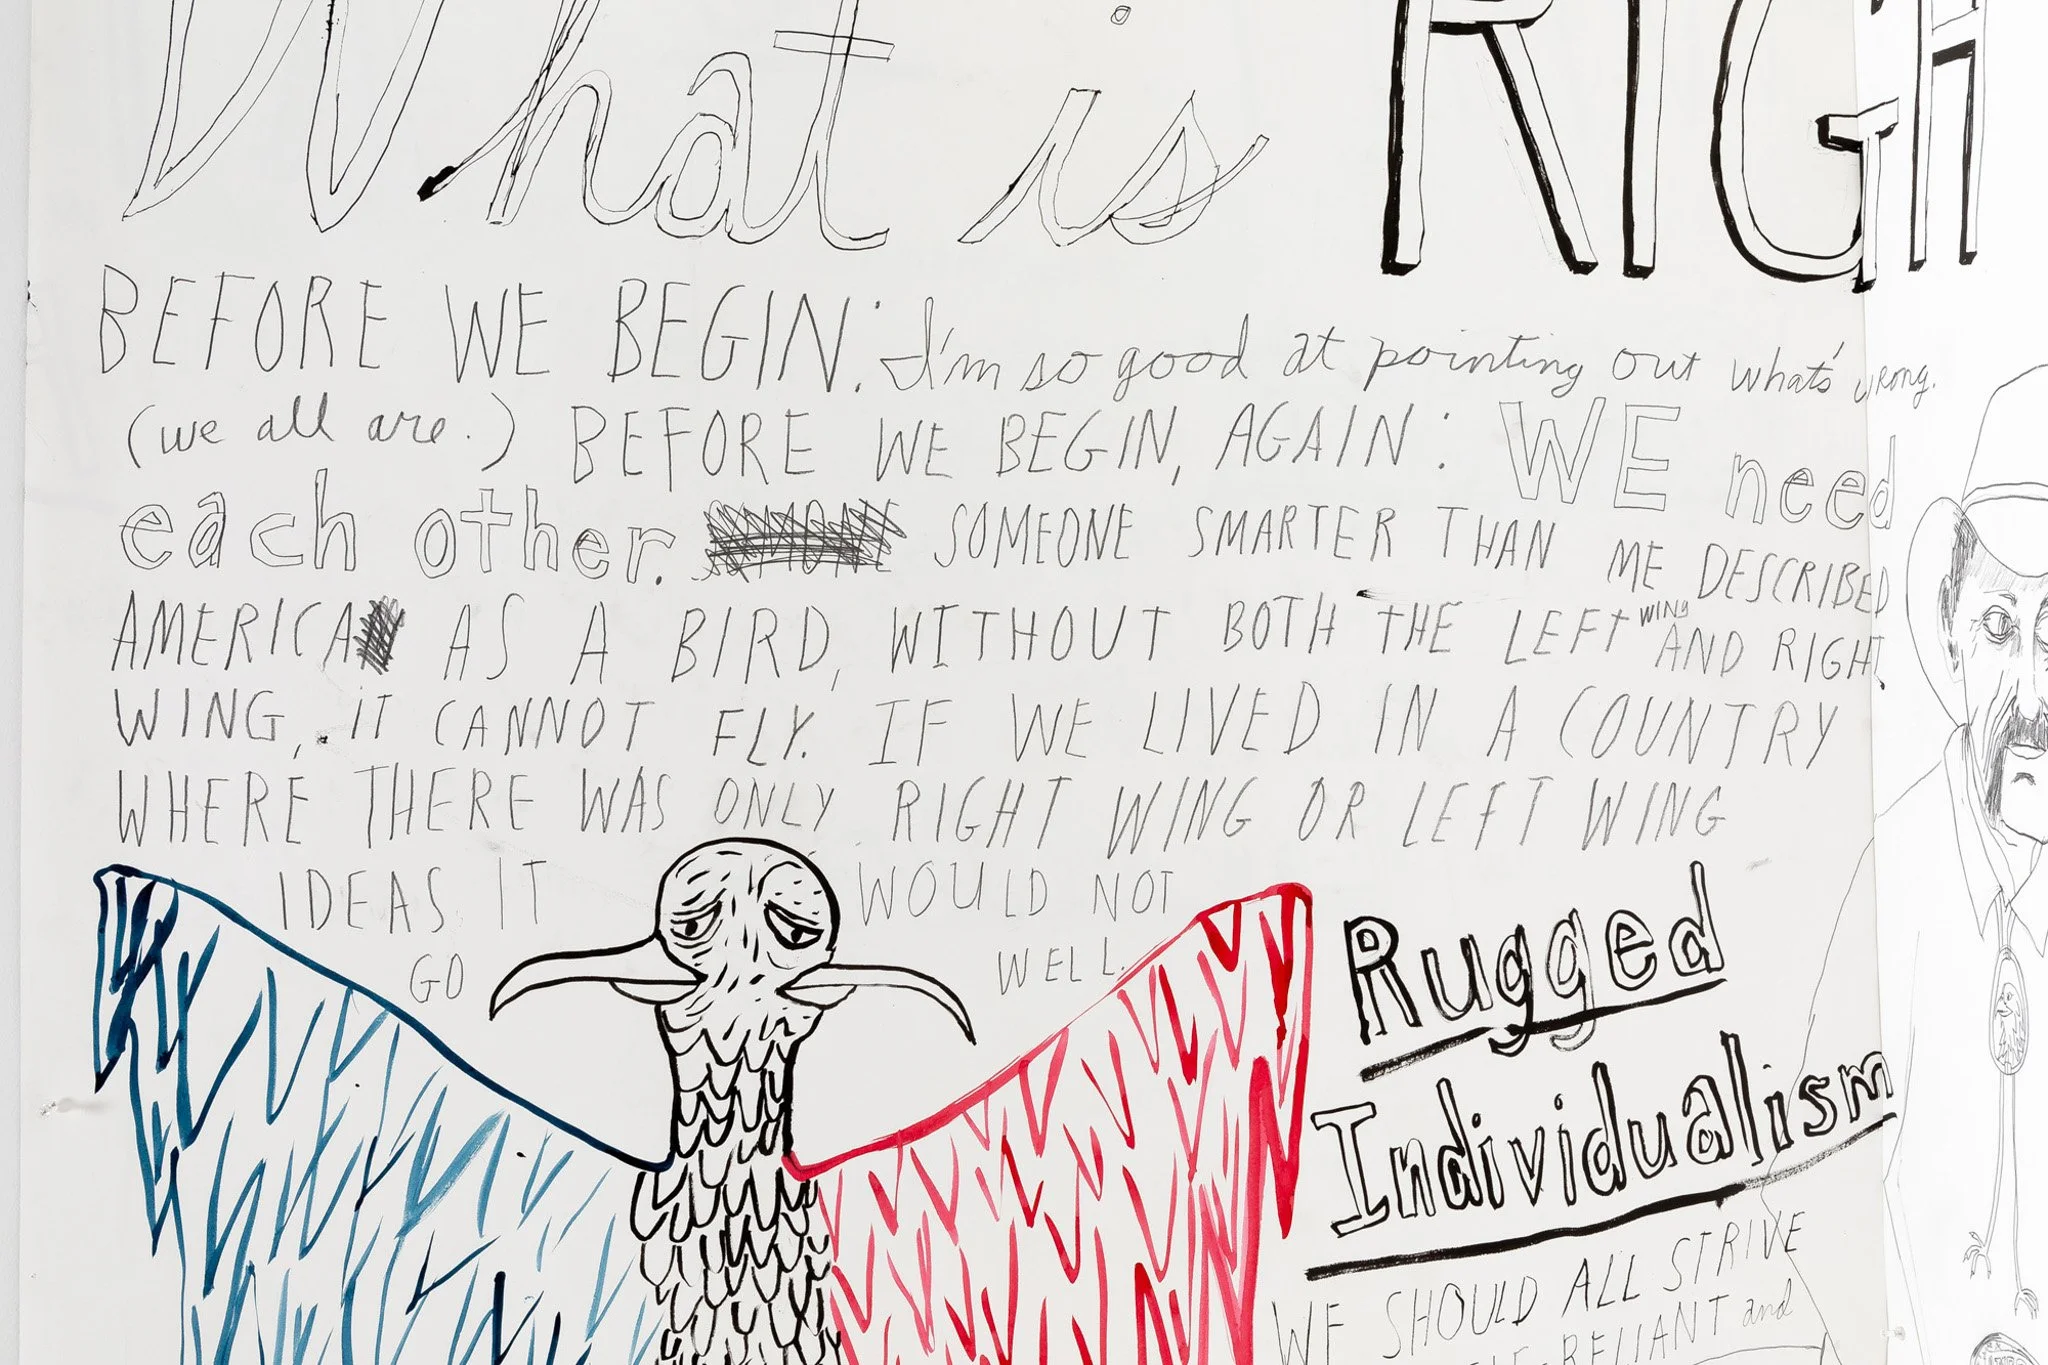 What is RIGH
BEFORE WE BEGIN: I'm so good at pointing out what's wrong.
(we all are.) BEFORE WE BEGIN, AGAIN: WE need
each other. SOMEONE SMARTER THAN ME DESCRIBED
AMERICA AS A BIRD, WITHOUT BOTH THE LEFT WING AND RIGHT
WING, iT CANNOT FLY. IF WE LIVED IN A COUNTRY
WHERE THERE WAS ONLY RIGHT WING OR LEFT WING
IDEAS IT WOULD NOT
GO WELL.
Rugged
Individualism
WE SHOULD ALL STRIVE
RELIANT and